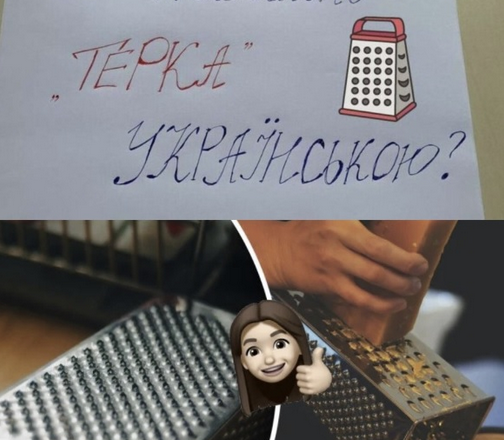 „ТЕРКА”
УКРАЇНСЬКОЮ?